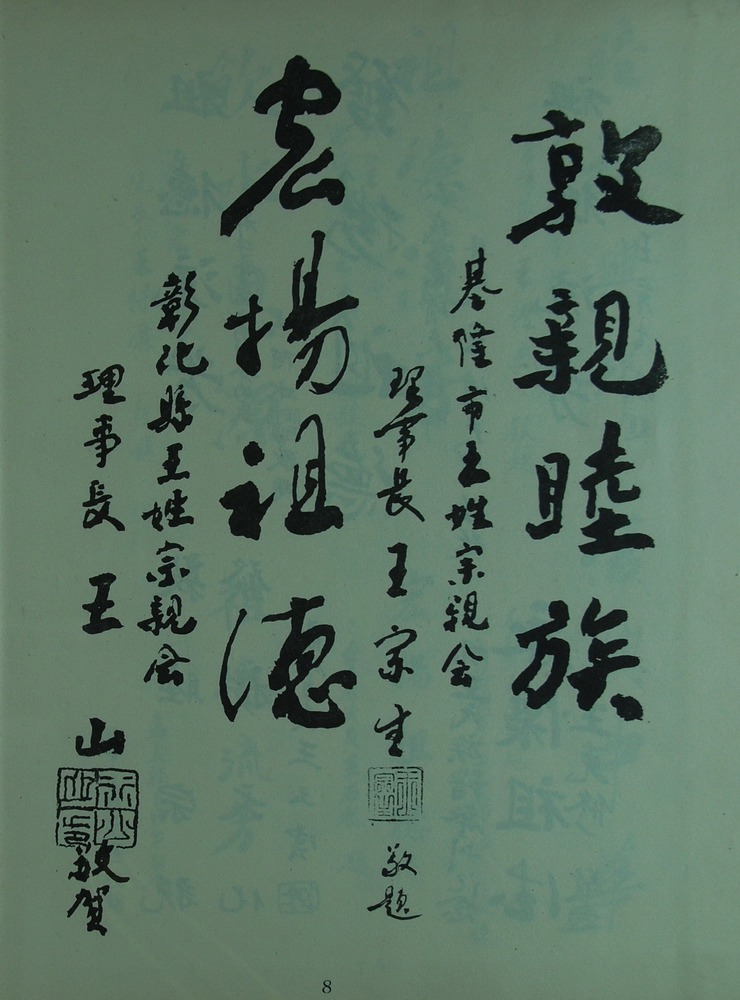 敦親睦族
基隆市王姓宗親会
理事長王宗生
敬題
宏揚祖德
彰化縣王姓宗親会
理事長王山
敬賀
8